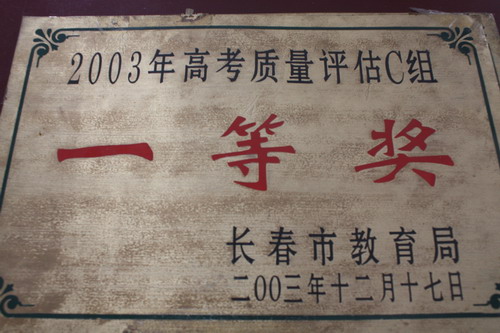 2003年高考质量评估C组
一等奖
长春市教育局
二00三年十二月十七日